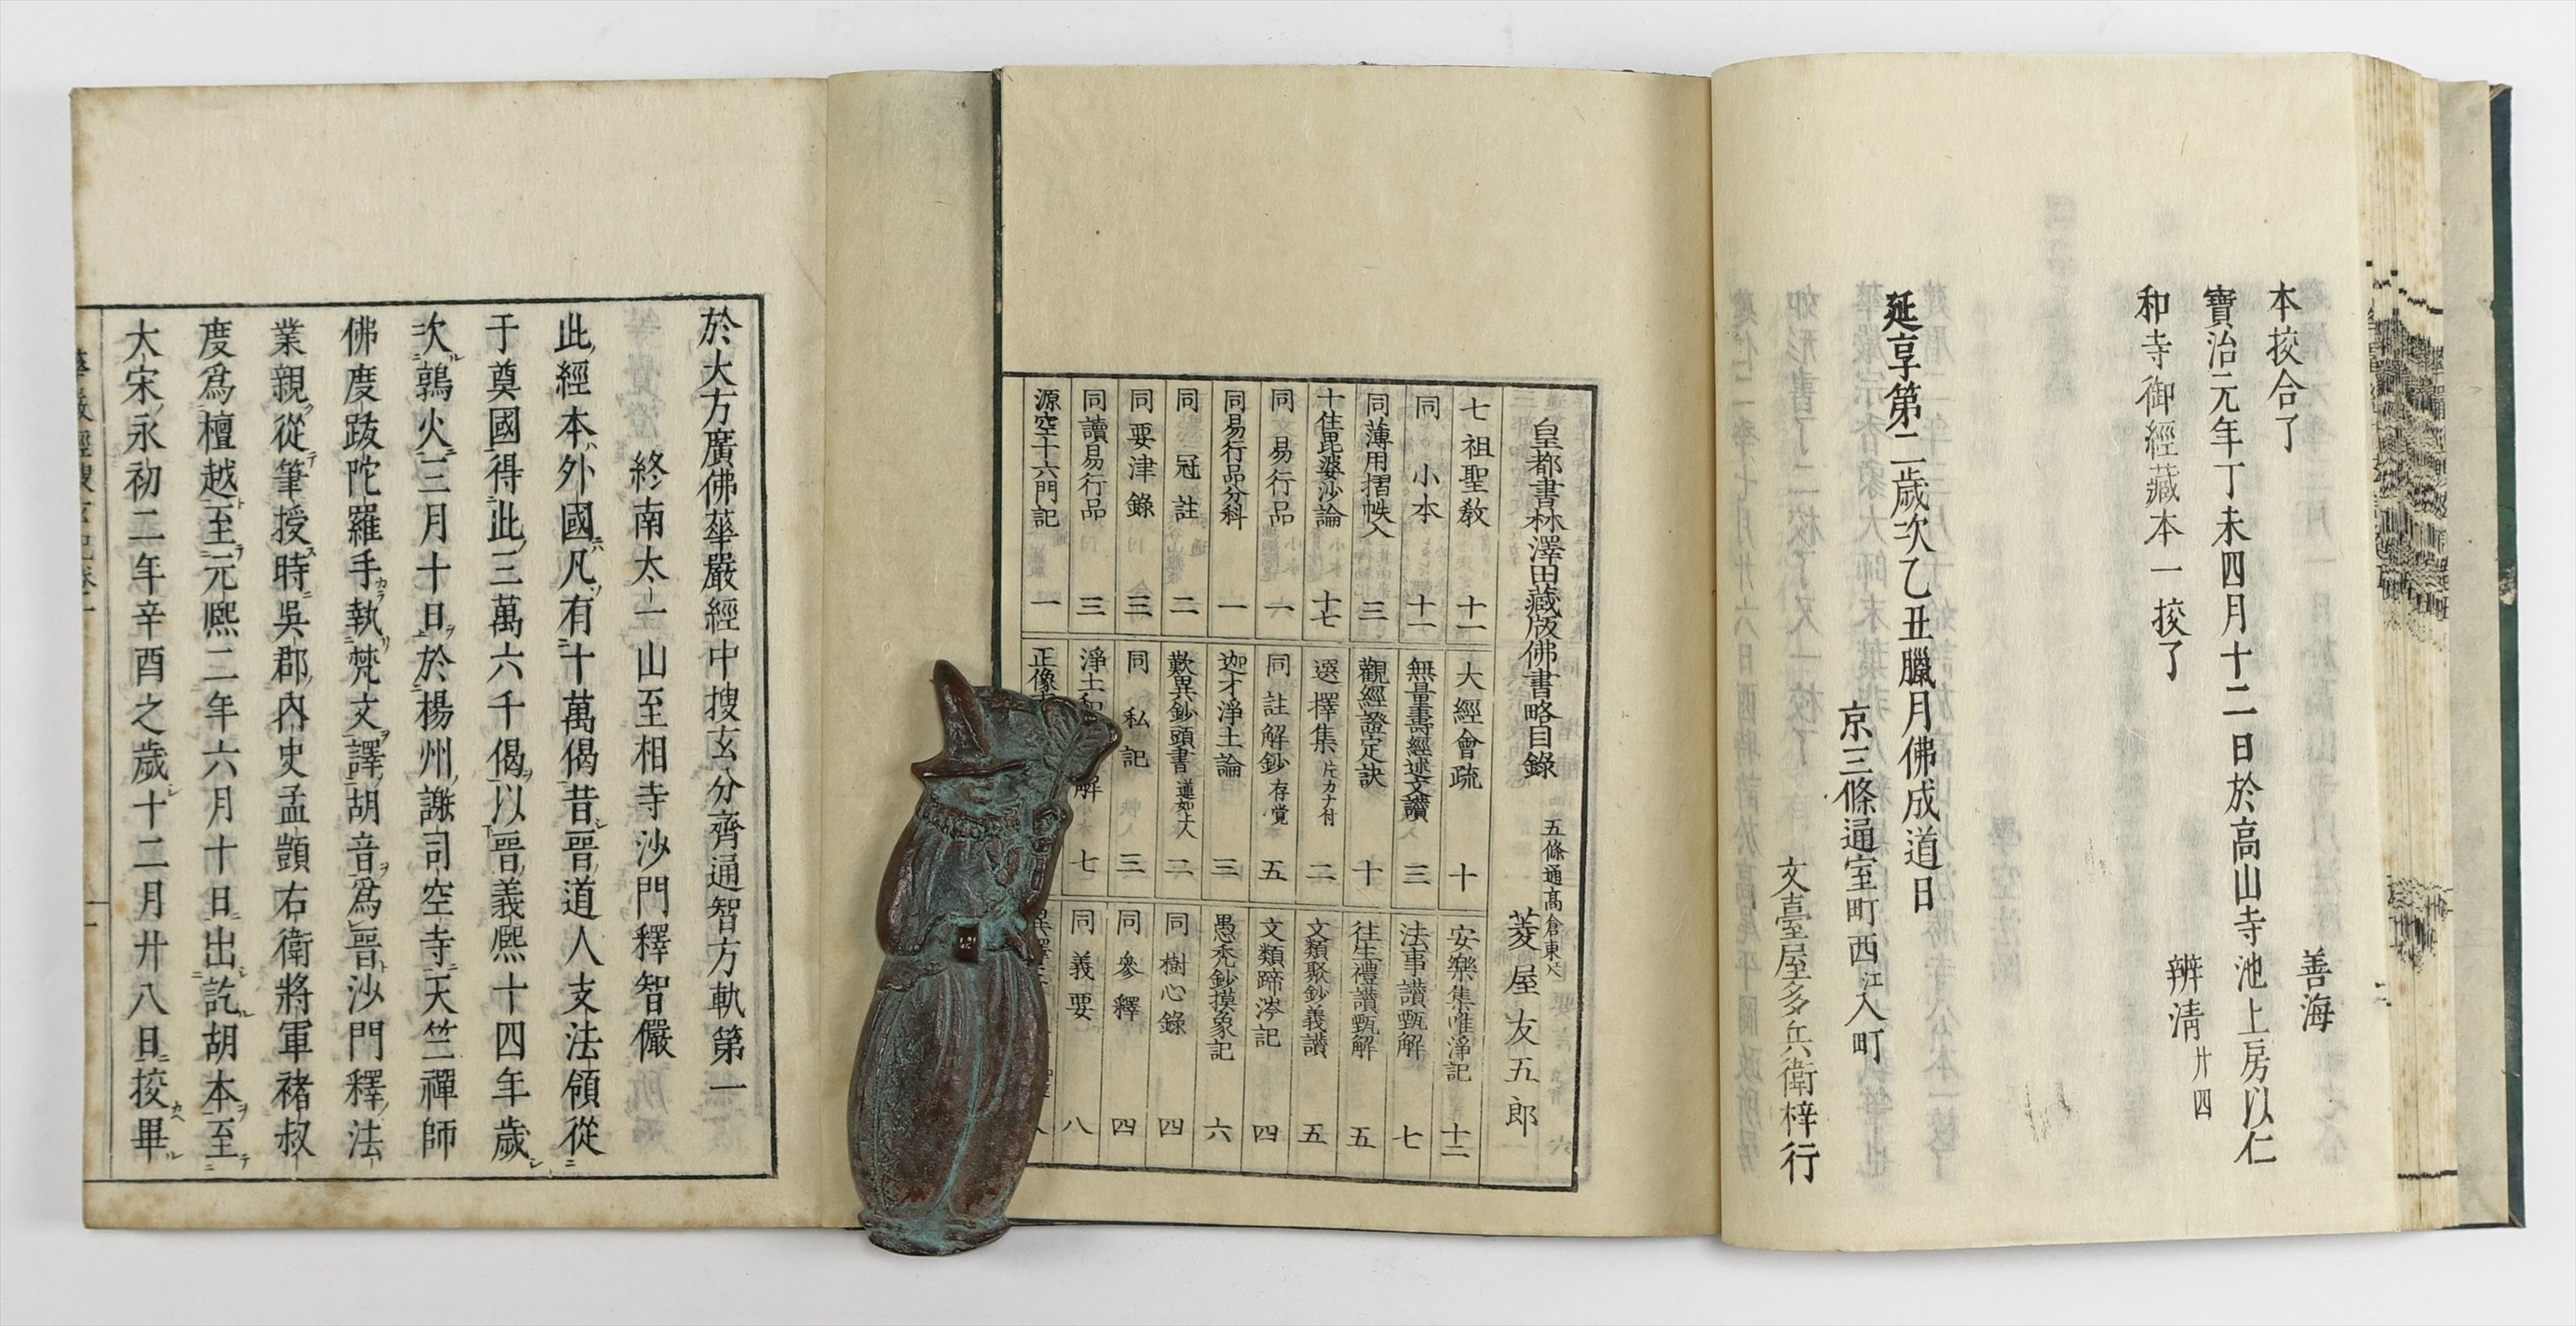 本挍合了
善海
寶治元年丁未四月十二日於高山寺池上房以仁
和寺御經藏本一挍了
辨淸
廾四
延享第二歲次乙丑臘月佛成道日
京三條通室町西江入町
文臺屋多兵衛梓行
皇都書林澤田藏版佛書略目錄
五條通髙倉東江入
菱屋友五郎
七祖聖敎 十一
同 小本 十一
同薄用摺帙入 三
十住毘婆沙論 十七
同 易行品 六
同易行品分科 一
同 冠註 二
同要津錄 三
同讀易行品 三
源空十六門記 一
大經會疏 十
無量壽經述文讚 三
觀經證定訣 十
選擇集 片カナ付 二
同註解鈔 存覚 五
迦才淨土論 三
歎異鈔頭書 蓮如上人 二
同私記 三
淨土 解 七
正像
安樂集唯淨記 十二
法事讃甄解 七
往生禮讃甄解 五
文類聚鈔義讃 五
文類蹄涔記 四
愚禿鈔摸象記 六
同樹心錄 四
同參釋 四
同義要 八
於大方廣佛華嚴經中搜玄分齊通智方軌第一
終南太一山至相寺沙門釋智儼
此經本外國凡有十萬偈昔晉道人支法領從
于奠國得此三萬六千偈以晉義熙十四年歲
次鶉火三月十日於楊州謝司空寺天竺禪師
佛度跋陀羅手執梵文譯胡音爲晉沙門釋法
業親從筆授時吳郡內史孟顗右衛將軍褚叔
度爲檀越至元熙二年六月十日出訖胡本至
大宋永初二年辛酉之歲十二月廾八日挍畢